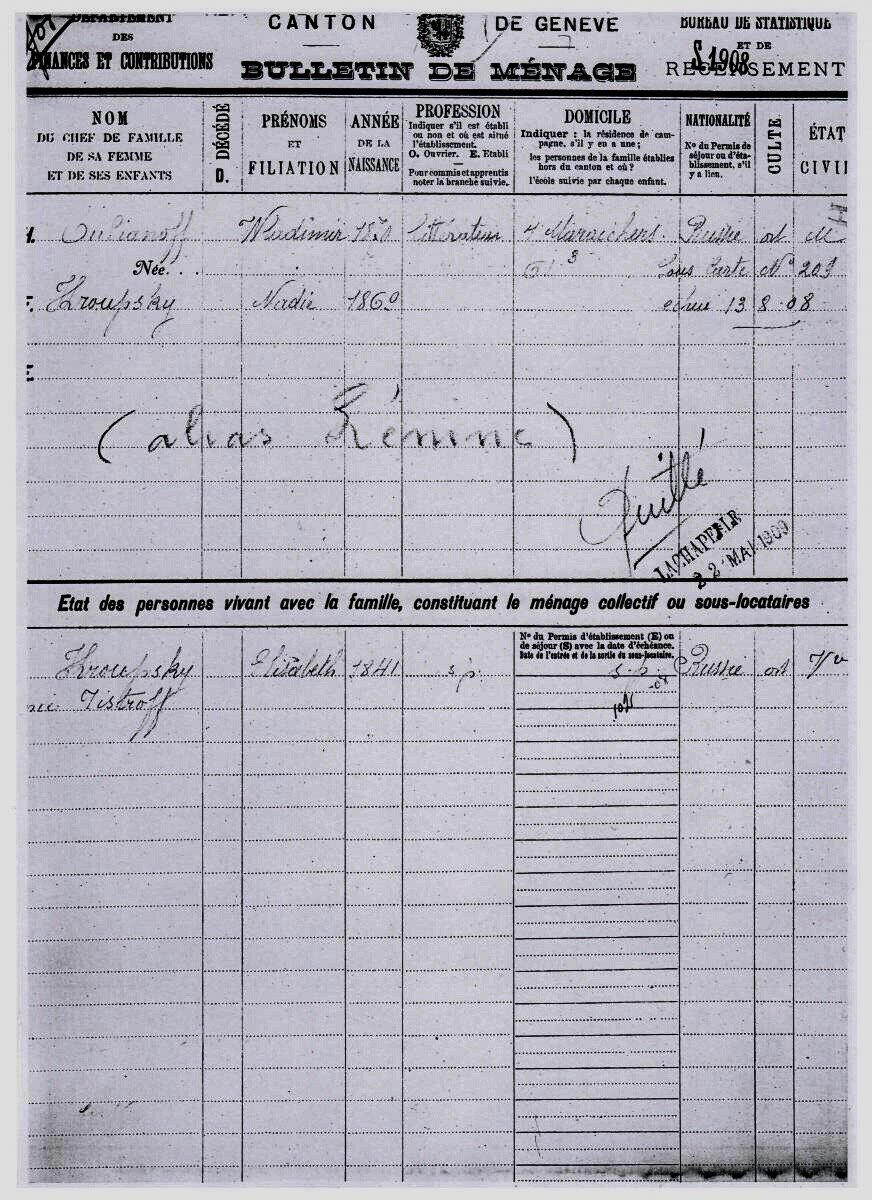 DÉPARTEMENT
DES
FINANCES ET CONTRIBUTIONS
CANTON DE GENEVE
BULLETIN DE MÉNAGE
BUREAU DE STATISTIQUE
ET DE
RECENSEMENT
S 1908
NOM
DU CHEF DE FAMILLE
DE SA FEMME
ET DE SES ENFANTS
DÉCÉDÉ
D.
PRÉNOMS
ET
FILIATION
ANNÉE
DE LA
NAISSANCE
PROFESSION
Indiquer s'il est établi
ou non et où est situé
l'établissement.
O. Ouvrier. E. Etabli
Pour commis et apprentis
noter la branche suivie.
DOMICILE
Indiquer : la résidence de cam-
pagne, s'il y en a une ;
les personnes de la famille établies
hors du canton et où ?
l'école suivie par chaque enfant.
NATIONALITÉ
No du Permis de
séjour ou d'éta-
blissement, s'il
y a lieu.
CULTE
ÉTAT
CIVIL
Oulianoff Wladimir 1870 littérateur 4 Maraichers Russie ort M
Née . . 61 3 Sous Carte No 203
F. Kroupsky Nadie 1869 echue 13 8 08
(alias Lénine)
Quitté
LACHAPELLE
22 MAI 1909
Etat des personnes vivant avec la famille, constituant le ménage collectif ou sous-locataires
No du Permis d'établissement (E) ou
de séjour (S) avec la date d'échéance.
Date de l'entrée et de la sortie du sous-locataire.
Kroupsky Elisabeth 1841 s.p. s-p. Russie ort Vve
née Tistroff